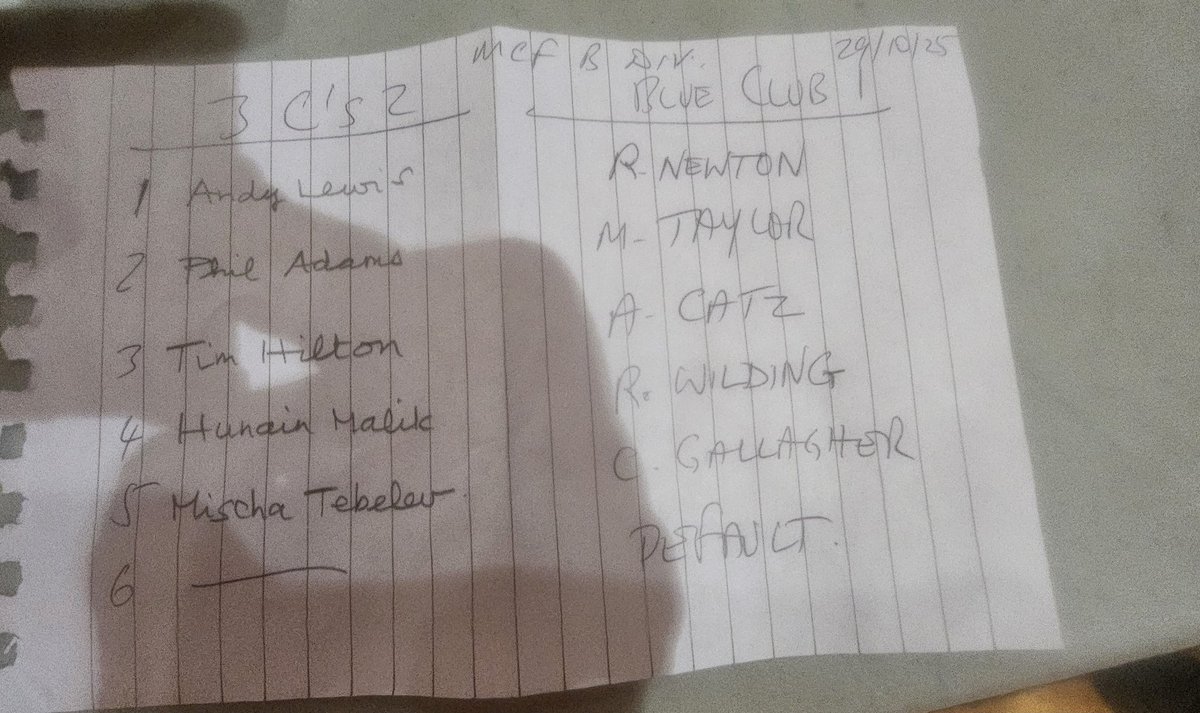 MCF B DIV. 29/10/25
3 C's 2 BLUE CLUB 1
1 Andy Lewis R. NEWTON
2 Phil Adams M- TAYLOR
3 Tim Hilton A- CATZ
4 Hunain Malik R. WILDING
5 Mischa Tebelev. C. GALLAGHER
6 — DEFAULT.